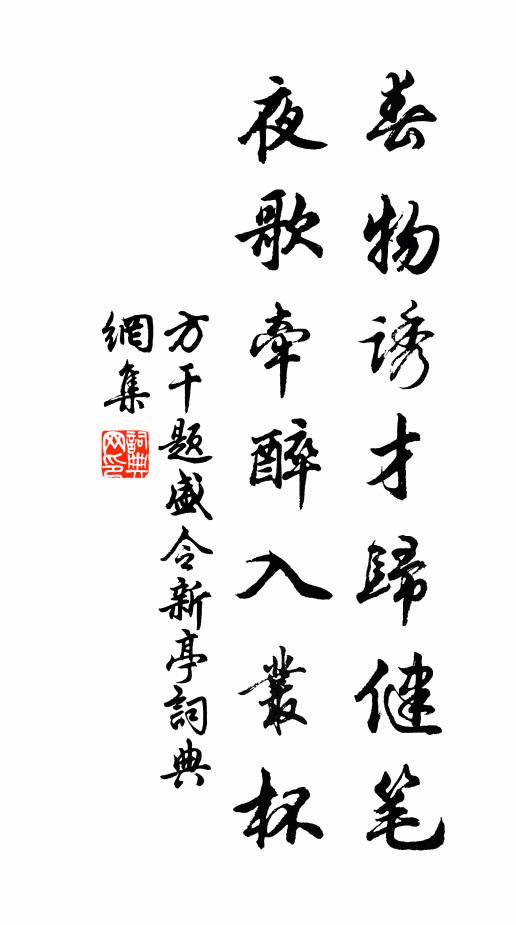 春物誘才歸健笔
夜歌牽醉入叢杯
方干题盛令新亭詞典
網集
詞典
网印